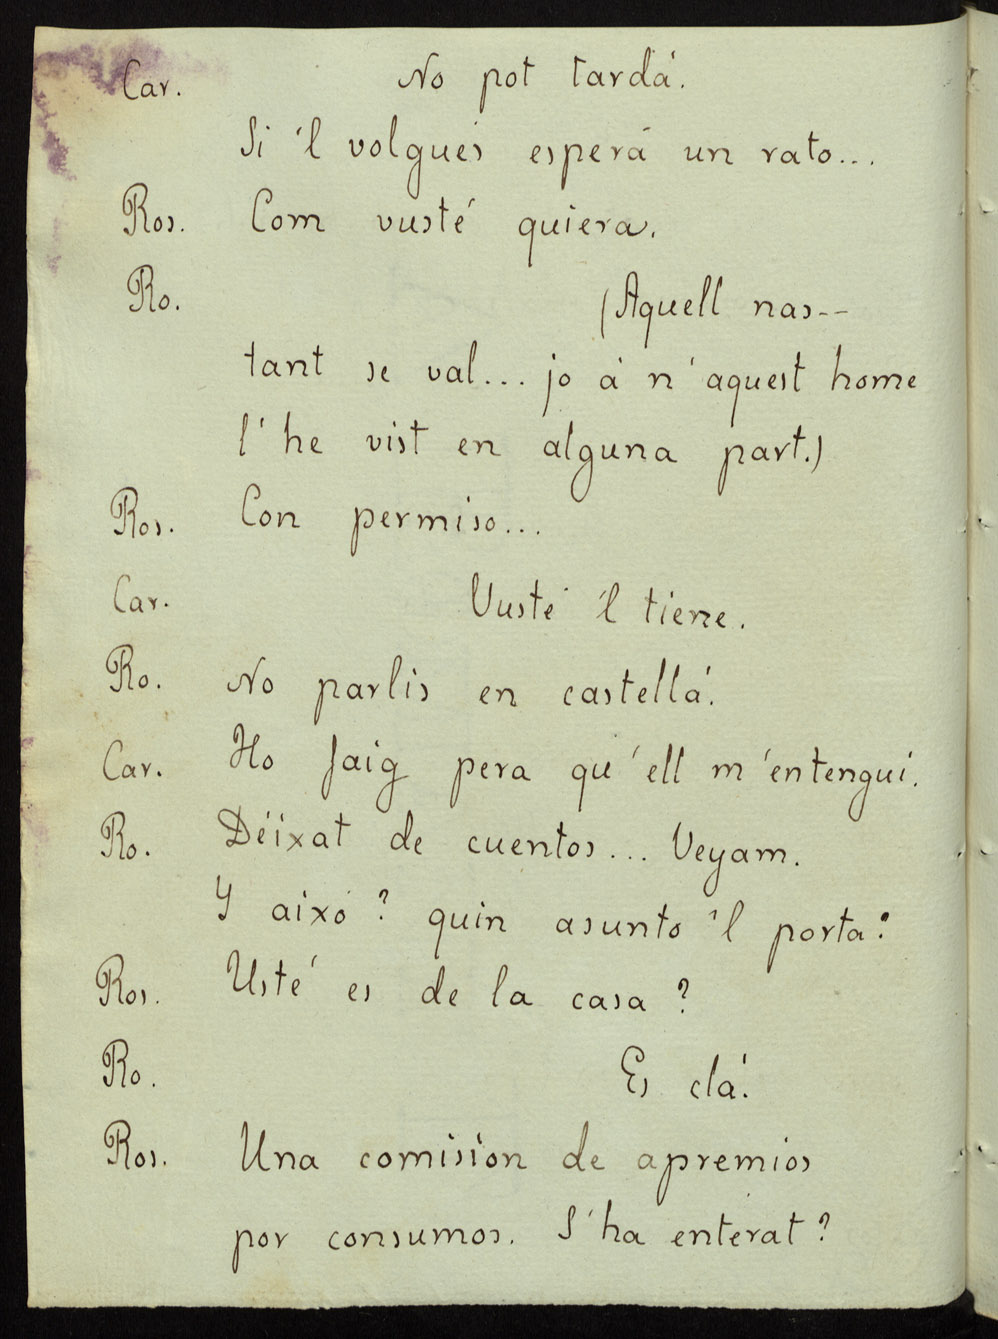 Car. No pot tardá.
Si 'l volgués esperá un rato...
Ros. Com vusté quiera.
Ro. (Aquell nas--
tant se val... jo á n'aquest home
l'he vist en alguna part.)
Ros. Con permiso...
Car. Vusté 'l tiene.
Ro. No parlis en castellá.
Car. Ho faig pera qu'ell m'entengui.
Ro. Déixat de cuentos... Veyam.
Y aixó? quin asunto 'l porta?
Ros. Usté es de la casa?
Ro. Es clá.
Ros. Una comisión de apremios
por consumos. S'ha enterat?